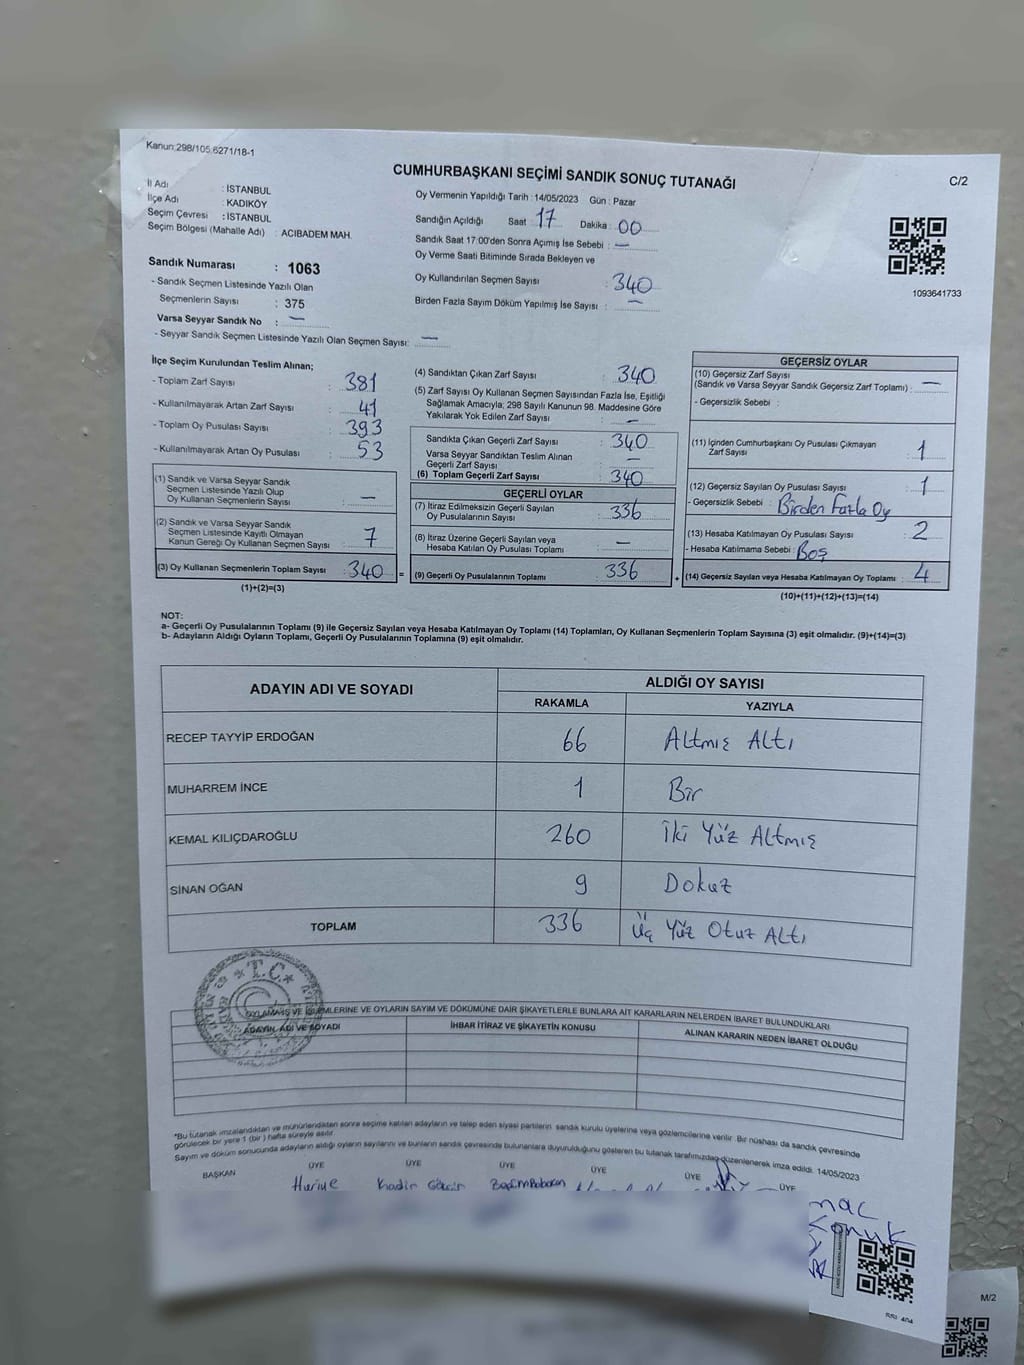 Kanun:298/105,6271/18-1
CUMHURBAŞKANI SEÇİMİ SANDIK SONUÇ TUTANAĞI
C/2
İl Adı : İSTANBUL
İlçe Adı : KADIKÖY
Seçim Çevresi : İSTANBUL
Seçim Bölgesi (Mahalle Adı) : ACIBADEM MAH.
Oy Vermenin Yapıldığı Tarih : 14/05/2023 Gün : Pazar
Sandığın Açıldığı Saat 17 Dakika : 00
Sandık Saat 17:00'den Sonra Açımış İse Sebebi : —
Oy Verme Saati Bitiminde Sırada Bekleyen ve
Oy Kullandırılan Seçmen Sayısı : 340
Birden Fazla Sayım Döküm Yapılmış İse Sayısı : —
1093641733
Sandık Numarası : 1063
- Sandık Seçmen Listesinde Yazılı Olan
Seçmenlerin Sayısı : 375
Varsa Seyyar Sandık No : —
- Seyyar Sandık Seçmen Listesinde Yazılı Olan Seçmen Sayısı: —
İlçe Seçim Kurulundan Teslim Alınan;
- Toplam Zarf Sayısı : 381
- Kullanılmayarak Artan Zarf Sayısı : 41
- Toplam Oy Pusulası Sayısı : 393
- Kullanılmayarak Artan Oy Pusulası : 53
(1) Sandık ve Varsa Seyyar Sandık
Seçmen Listesinde Yazılı Olup
Oy Kullanan Seçmenlerin Sayısı : —
(2) Sandık ve Varsa Seyyar Sandık
Seçmen Listesinde Kayıtlı Olmayan
Kanun Gereği Oy Kullanan Seçmen Sayısı : 7
(3) Oy Kullanan Seçmenlerin Toplam Sayısı : 340 =
(1)+(2)=(3)
(4) Sandıktan Çıkan Zarf Sayısı : 340
(5) Zarf Sayısı Oy Kullanan Seçmen Sayısından Fazla İse, Eşitliği
Sağlamak Amacıyla; 298 Sayılı Kanunun 98. Maddesine Göre
Yakılarak Yok Edilen Zarf Sayısı : —
Sandıkta Çıkan Geçerli Zarf Sayısı : 340
Varsa Seyyar Sandıktan Teslim Alınan
Geçerli Zarf Sayısı : —
(6) Toplam Geçerli Zarf Sayısı : 340
GEÇERLİ OYLAR
(7) İtiraz Edilmeksizin Geçerli Sayılan
Oy Pusulalarının Sayısı : 336
(8) İtiraz Üzerine Geçerli Sayılan veya
Hesaba Katılan Oy Pusulası Toplamı : —
(9) Geçerli Oy Pusulalarının Toplamı : 336 +
GEÇERSİZ OYLAR
(10) Geçersiz Zarf Sayısı
(Sandık ve Varsa Seyyar Sandık Geçersiz Zarf Toplamı) : —
- Geçersizlik Sebebi :
(11) İçinden Cumhurbaşkanı Oy Pusulası Çıkmayan
Zarf Sayısı : 1
(12) Geçersiz Sayılan Oy Pusulası Sayısı : 1
- Geçersizlik Sebebi : Birden Fazla Oy
(13) Hesaba Katılmayan Oy Pusulası Sayısı : 2
- Hesaba Katılmama Sebebi : Boş
(14) Geçersiz Sayılan veya Hesaba Katılmayan Oy Toplamı : 4
(10)+(11)+(12)+(13)=(14)
NOT:
a- Geçerli Oy Pusulalarının Toplamı (9) ile Geçersiz Sayılan veya Hesaba Katılmayan Oy Toplamı (14) Toplamları, Oy Kullanan Seçmenlerin Toplam Sayısına (3) eşit olmalıdır. (9)+(14)=(3)
b- Adayların Aldığı Oyların Toplamı, Geçerli Oy Pusulalarının Toplamına (9) eşit olmalıdır.
ADAYIN ADI VE SOYADI ALDIĞI OY SAYISI
RAKAMLA YAZIYLA
RECEP TAYYİP ERDOĞAN 66 Altmış Altı
MUHARREM İNCE 1 Bir
KEMAL KILIÇDAROĞLU 260 İki Yüz Altmış
SİNAN OĞAN 9 Dokuz
TOPLAM 336 Üç Yüz Otuz Altı
T.C.
OYLAMA İŞ VE İŞLEMLERİNE VE OYLARIN SAYIM VE DÖKÜMÜNE DAİR ŞİKAYETLERLE BUNLARA AİT KARARLARIN NELERDEN İBARET BULUNDUKLARI
ADAYIN ADI VE SOYADI İHBAR İTİRAZ VE ŞİKAYETİN KONUSU ALINAN KARARIN NEDEN İBARET OLDUĞU
*Bu tutanak imzalandıktan ve mühürlendikten sonra seçime katılan adayların ve talep eden siyasi partilerin sandık kurulu üyelerine veya gözlemcilerine verilir. Bir nüshası da sandık çevresinde
görülecek bir yere 1 (bir) hafta süreyle asılır.
Sayım ve döküm sonucunda adayların aldığı oyların sayılarını ve bunların sandık çevresinde bulunanlara duyurulduğunu gösteren bu tutanak tarafımızdan düzenlenerek imza edildi. 14/05/2023
BAŞKAN ÜYE ÜYE ÜYE ÜYE ÜYE ÜYE
Kadir
M/2